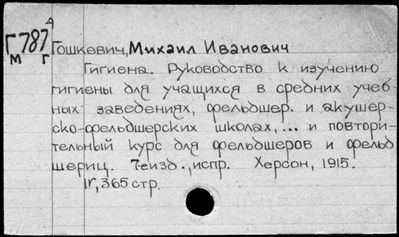 Г787 д
м г
Тошкевич, Михаил Иванович
Гигиена. Руководство к изучению
гигиены для учащихся в средних учеб-
ных заведениях, фельдшер. и акушер-
ско-фельдшерских школах,... и повтори-
тельный курс для фельдшеров и фельд
шериц. 7еизд., испр. Херсон, 1915.
365 стр.